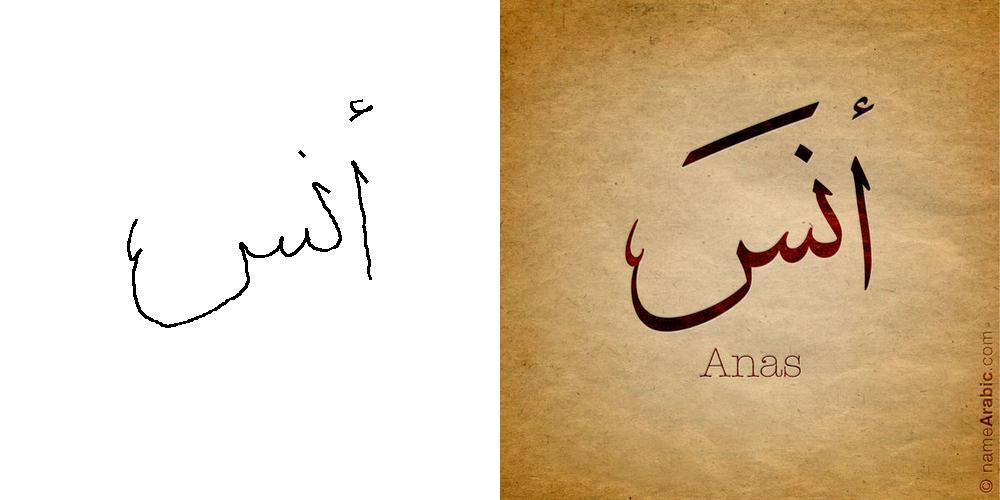 أنس
أنَس
Anas
© nameArabic.com